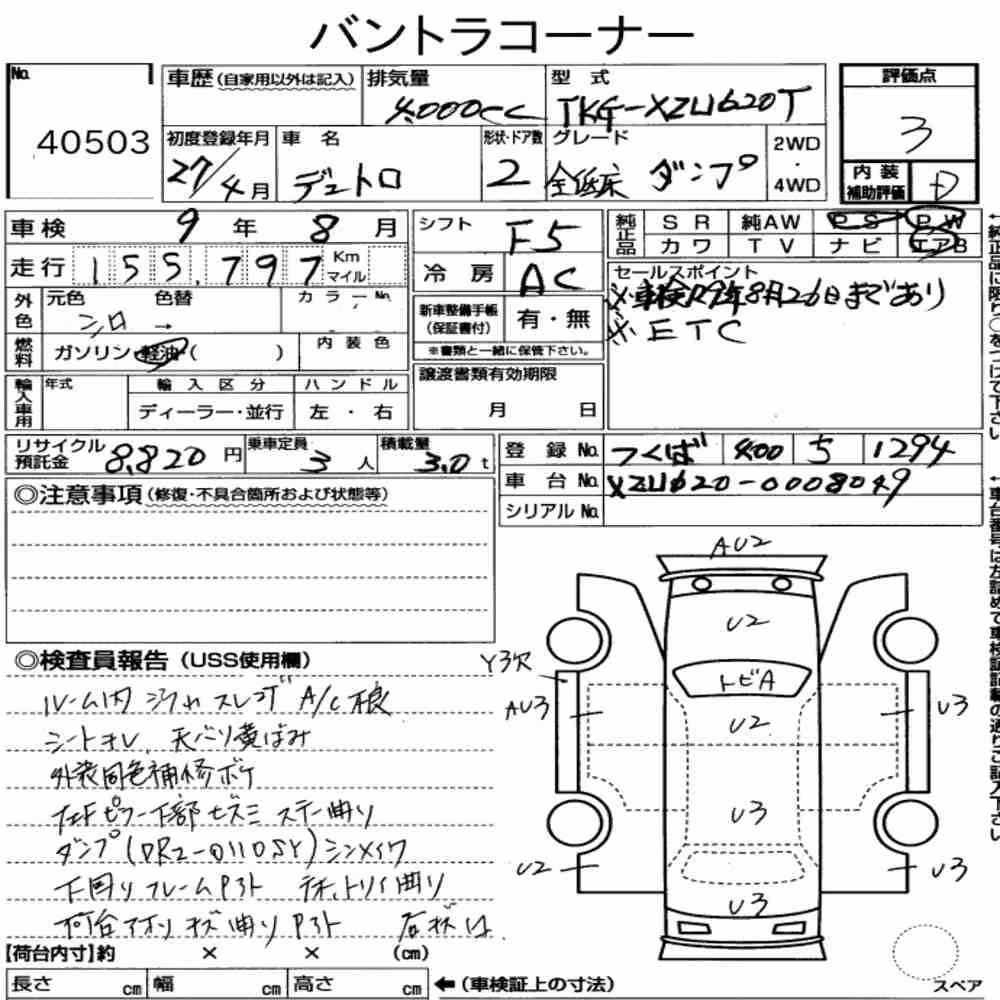 バントラコーナー
No.
40503
車歴(自家用以外は記入)
排気量
4.000cc
型式
TKG-XZU620T
評価点
3
初度登録年月
27/4月
車名
デュトロ
形状・ドア数
2
グレード
全低床 ダンプ
2WD
・
4WD
内装
補助評価
D
車検 9年 8月
シフト
F5
純正品
SR 純AW PS PW
カワ TV ナビ エアB
走行 155,797 Km
マイル
冷房 AC
セールスポイント
※車検R9年8月26日まであり
※ETC
外色
元色 色替 カラーNo.
シロ →
新車整備手帳
(保証書付)
有・無
※書類と一緒に保管下さい。
燃料
ガソリン・軽油・( )
内装色
譲渡書類有効期限
月 日
輸入車用
年式
輸入区分
ハンドル
ディーラー・並行
左・右
リサイクル
預託金
8,820円
乗車定員
3人
積載量
3.0t
登録No. つくば 400 5 1294
車台No. XZU620-0008049
シリアルNo.
◎注意事項(修復・不具合箇所および状態等)
←純正品に限り○をつけて下さい
←車台番号は左詰めで車検証記載の通りご記入下さい
◎検査員報告(USS使用欄)
シートヨレ、天バリ黄ばみ
外装同色補修ボケ
ダンプ(DR2-0110SY)シンメイワ
AU2
U2
Y3欠
トビA
AU3
U2
U3
U3
U2
U3
U3
【荷台内寸】約 × × (cm)
長さ cm 幅 cm 高さ cm ←(車検証上の寸法)
スペア